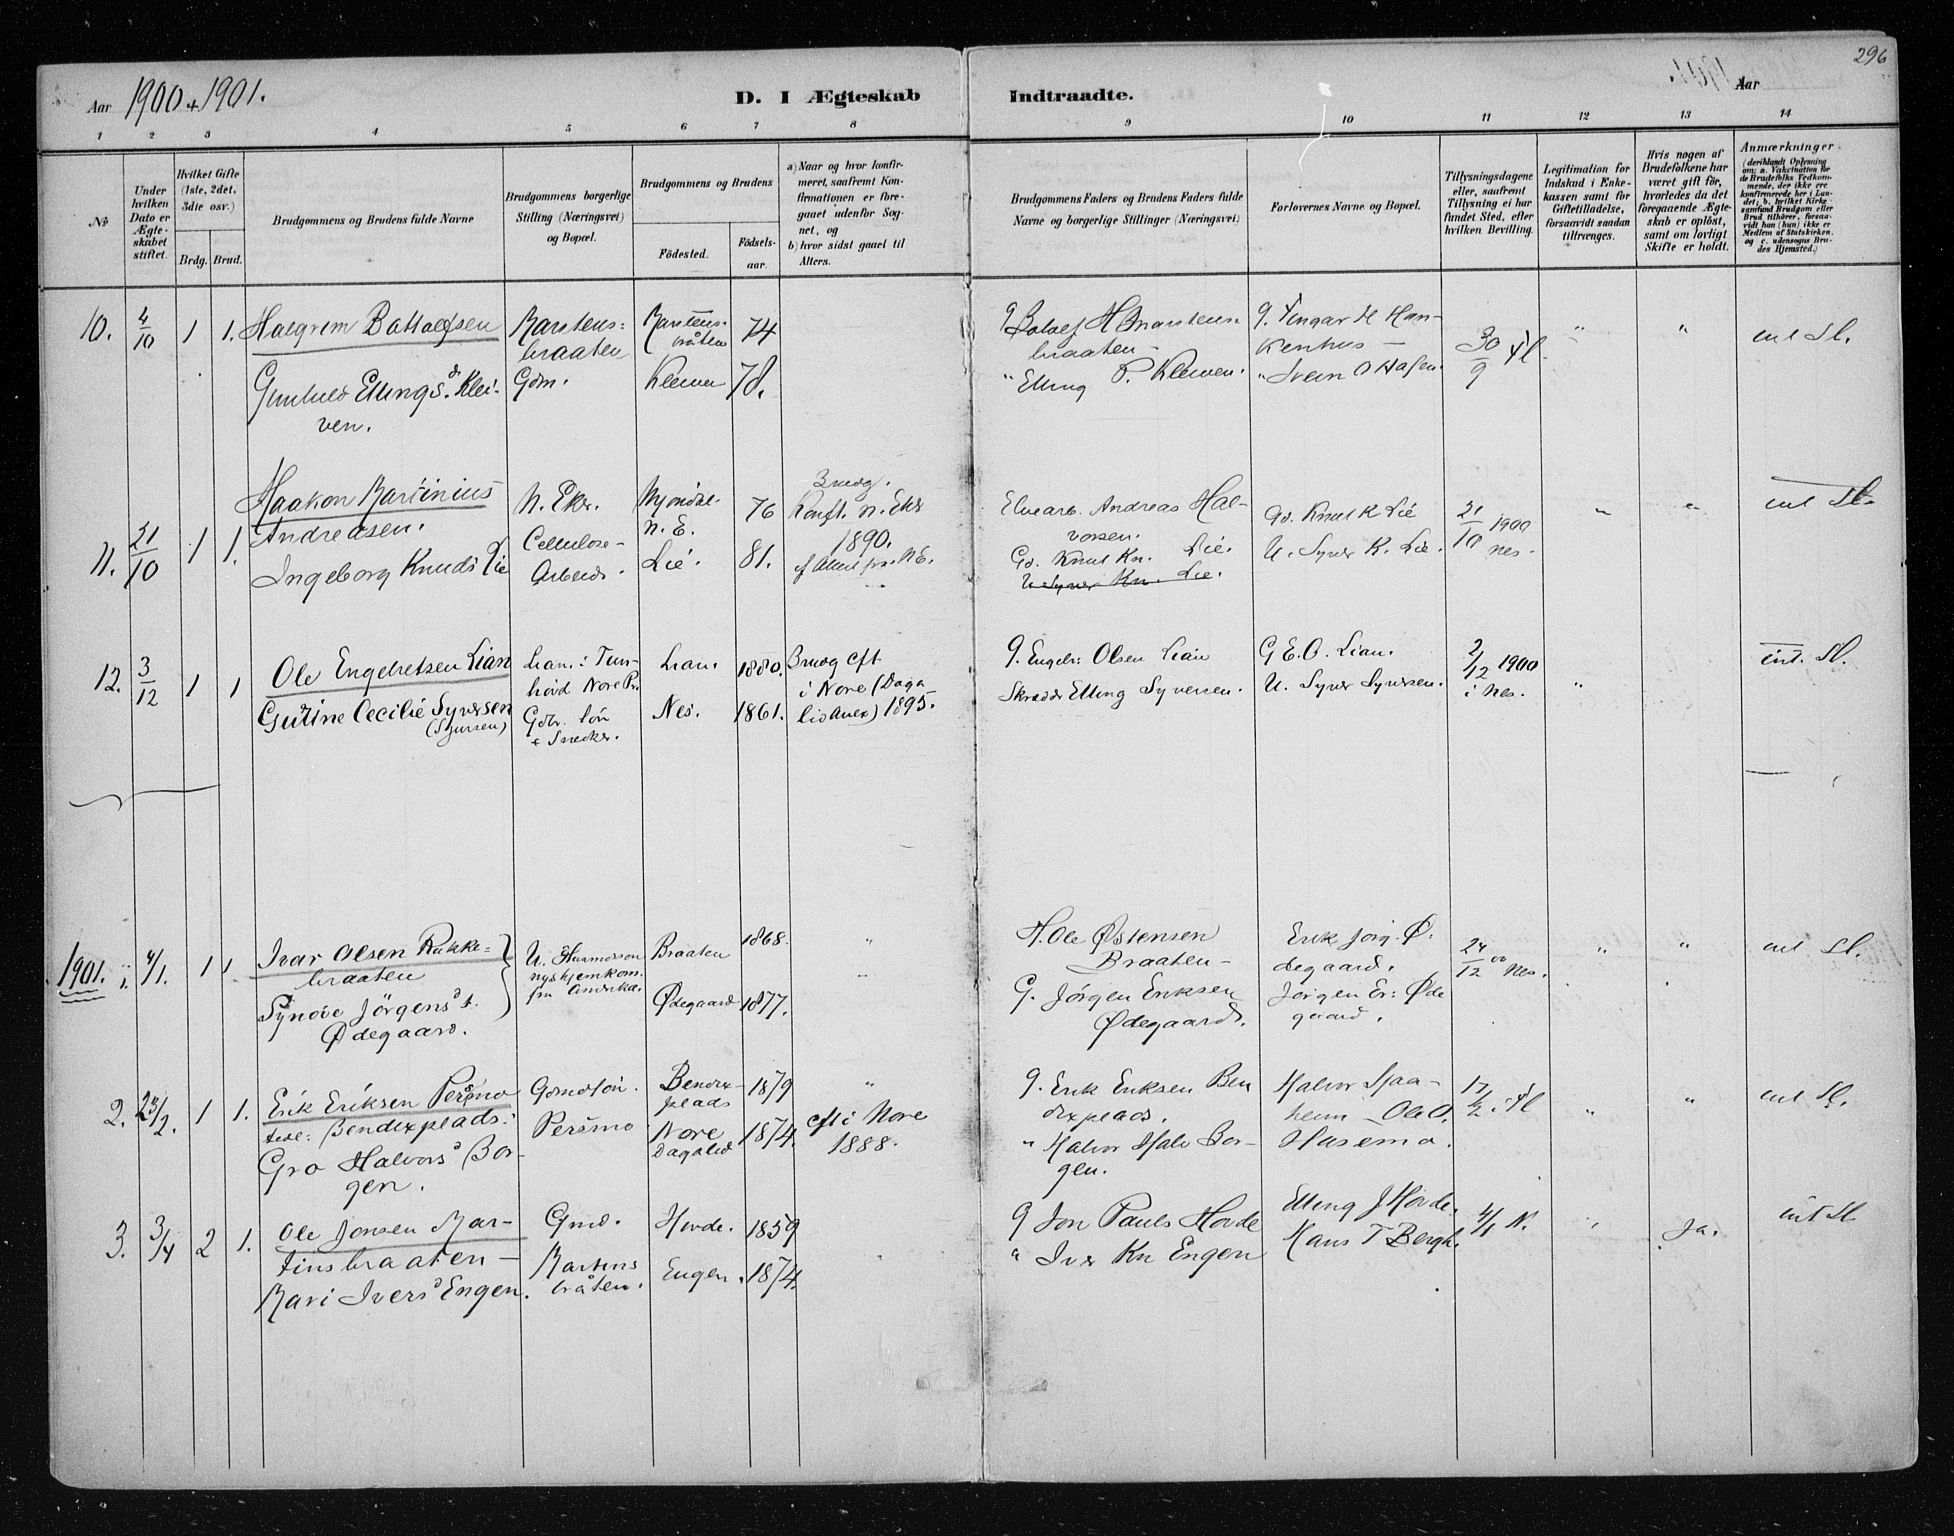 296
Aar 1900 + 1901.
D. I Ægteskab Indtraadte.
Aar
1 2 3 4 5 6 7 8 9 10 11 12 13 14
№
Under hvilken Dato er Ægteskabet stiftet.
Hvilket Gifte (1ste, 2det, 3die osv.)
Brdg. Brud.
Brudgommens og Brudens fulde Navne
Brudgommens borgerlige Stilling (Næringsvei) og Bopæl.
Brudgommens og Brudens
Fødested.
Fødsels-aar.
a) Naar og hvor konfirmeret, saafremt Konfirmationen er foregaaet udenfor Sognet, og
b) hvor sidst gaael til Alters.
Brudgommens Faders og Brudens Faders fulde Navne og borgerlige Stillinger (Næringsvei)
Forlovernes Navne og Bopæl.
Tillysningsdagene eller, saafremt Tillysning ei har fundet Sted, efter hvilken Bevilling.
Legitimation for Indskud i Enkekassen samt for Giftetilladelse, forsaavidt saadan tiltrænges.
Hvis nogen af Brudefolkene har været gift før, hvorledes da det foregaaende Ægteskab er opløst, samt om lovligt Skifte er holdt.
Anmærkninger.
(deriblandt Oplysning om: a. Vakcination for de Brudefolks Vedkommende, der ikke ere konfirmerede her i Landet; b. hvilket Kirkesamfund Brudgom eller Brud tilhører, forsaavidt han (hun) ikke er Medlem af Statskirken, og c. udensogns Brudes Hjemsted.)
10. 4/10 1 1. Halgrim
Gunhild Ellings d. Kleiven.
braaten Gdm.
74
78.
braaten -
" Elling P. Kleiven.
" Svein O Hafen.
30/9 Fl.
" "
11. 21/10 1 1. Haakon Martinius Andreasen.
Ingeborg Knuds Lie
N. Eker.
Cellulose-
Arbeid.
N. E.
Lie.
76
81.
Brudg.
Konf. N. Eker
1890.
Andreas Halvorsen.
Gd. Knut Kn. Lie.
U. Syver Kn. Lie.
Gd. Knut K Lie
U. Syver K. Lie.
21/10 1900
nes.
" "
12. 3/12 1 1 Ole Engebretsen Lian
Gutine Cecilie Syversen
(Sjursen)
Lian i Tunhövd Nore Pr.
Gdbr. Sön
+ Snedker.
Lian.
Nes.
1880.
1861.
Brudg cft.
i Nore (Daga
lis Anex) 1895.
G. Engebr: Olsen Lian
Skrædder Elling Syversen.
G E. O. Lian.
U. Syver Syversen.
2/12 1900
i Nes.
"
int. Sl.
1901. 1. 4/1. 1 1 Ivar Olsen Rukkebraaten
Synöve Jörgens d.
Ødegaard.
U. Husmdssön
nys hjemkom.
fra Amerika.
Braaten
Ødegaard
1868.
1877.
"
"
H. Ole Østensen
Braaten -
G. Jörgen Eriksen
Ødegaard.
Erik Jörg. Ødegaard.
Jörgen Er: Ødegaard.
24/12 00 Nes.
" "
2. 23/2. 1 1. Erik Eriksen Persmo
Bendixplads.
Gro Halvors d Borgen.
Gdmdsön.
Persmo
Bendixplads
Nore
Dagalid
1879
1874.
"
cft i Nore
1888.
G. Erik Eriksen Bendixplads.
" Halvor Halv Borgen.
Halvor Sjaaheim - Ole O.
Husemo.
17/2. Fl
" "
3. 3/4 2 1. Ole Jonsen Martinsbraaten -
Mari Ivers d Engen.
Gmd.
Martinsbråten.
Hovde.
Engen.
1859
1874.
"
G Jon Pauls Hovde
" Iver Kn Engen
Elling J Hovde.
Hans T Bergh.
4/1 N.
"
Ja.
int Sl